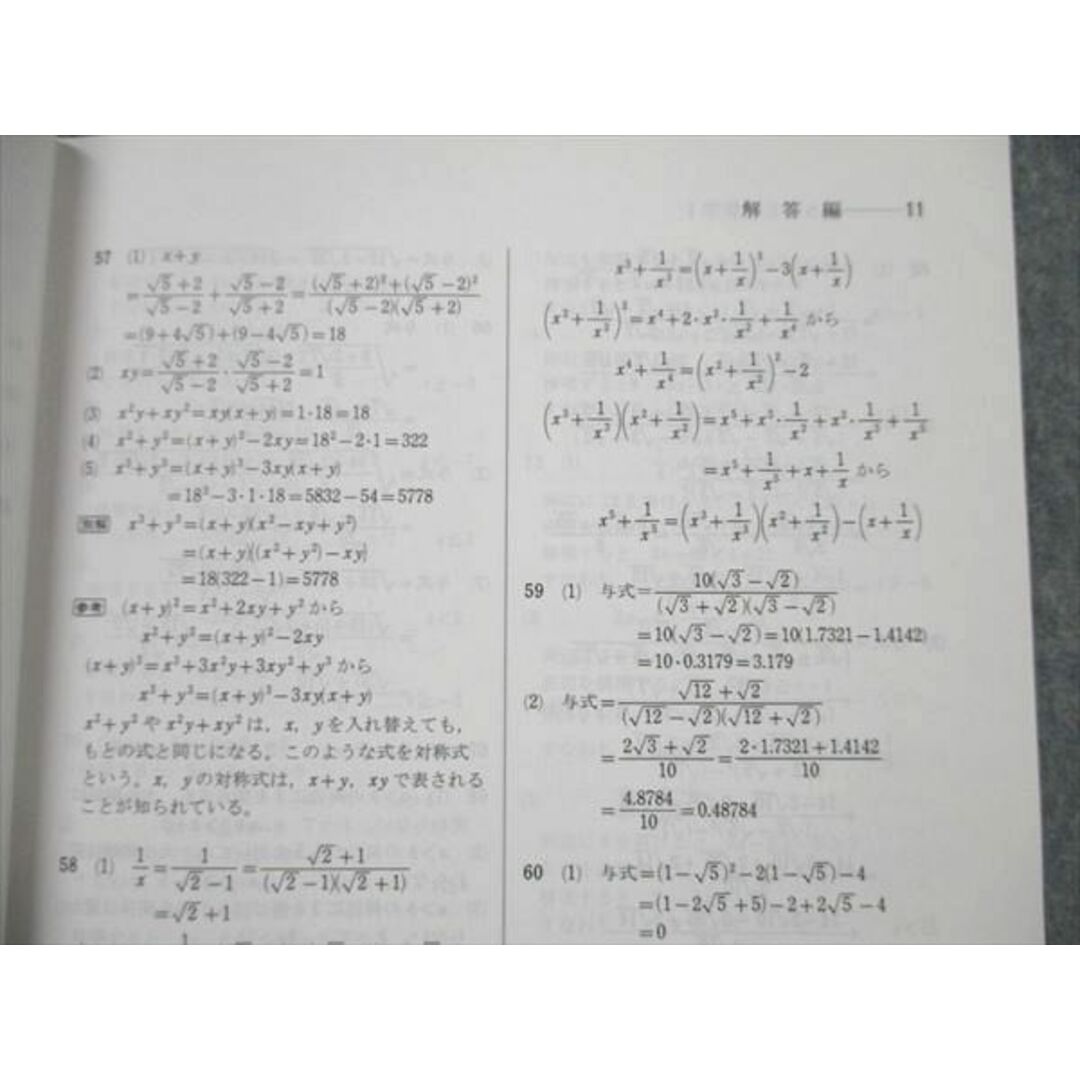 解答編――11
57 (1) x+y
=(√5+2)/(√5−2)+(√5−2)/(√5+2)=((√5+2)²+(√5−2)²)/((√5−2)(√5+2))
=(9+4√5)+(9−4√5)=18
(2) xy=(√5+2)/(√5−2)・(√5−2)/(√5+2)=1
(3) x²y+xy²=xy(x+y)=1・18=18
(4) x²+y²=(x+y)²−2xy=18²−2・1=322
(5) x³+y³=(x+y)³−3xy(x+y)
=18³−3・1・18=5832−54=5778
別解 x³+y³=(x+y)(x²−xy+y²)
=(x+y){(x²+y²)−xy}
=18(322−1)=5778
参考 (x+y)²=x²+2xy+y² から
x²+y²=(x+y)²−2xy
(x+y)³=x³+3x²y+3xy²+y³ から
x³+y³=(x+y)³−3xy(x+y)
x²+y² や x²y+xy² は，x，y を入れ替えても，
もとの式と同じになる。このような式を対称式
という。x，y の対称式は，x+y，xy で表される
ことが知られている。
58 (1) 1/x=1/(√2−1)=(√2+1)/((√2−1)(√2+1))
=√2+1
x³+1/x³=(x+1/x)³−3(x+1/x)
(x²+1/x²)²=x⁴+2・x²・1/x²+1/x⁴ から
x⁴+1/x⁴=(x²+1/x²)²−2
(x³+1/x³)(x²+1/x²)=x⁵+x³・1/x²+x²・1/x³+1/x⁵
=x⁵+1/x⁵+x+1/x から
x⁵+1/x⁵=(x³+1/x³)(x²+1/x²)−(x+1/x)
59 (1) 与式=10(√3−√2)/((√3+√2)(√3−√2))
=10(√3−√2)=10(1.7321−1.4142)
=10・0.3179=3.179
(2) 与式=(√12+√2)/((√12−√2)(√12+√2))
=(2√3+√2)/10=(2・1.7321+1.4142)/10
=4.8784/10=0.48784
60 (1) 与式=(1−√5)²−2(1−√5)−4
=(1−2√5+5)−2+2√5−4
=0